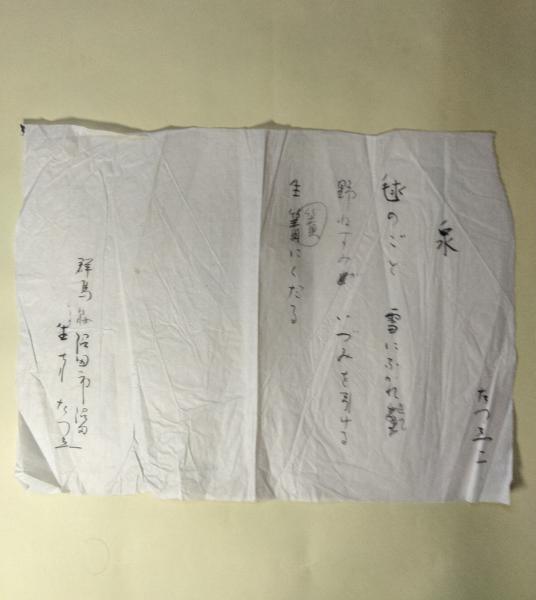 たつゑ
泉
毬のごと 雪にふかれ
野ねずみが いづみを引ける
簀
生簀にくだる
群馬縣沼田市
生方たつゑ